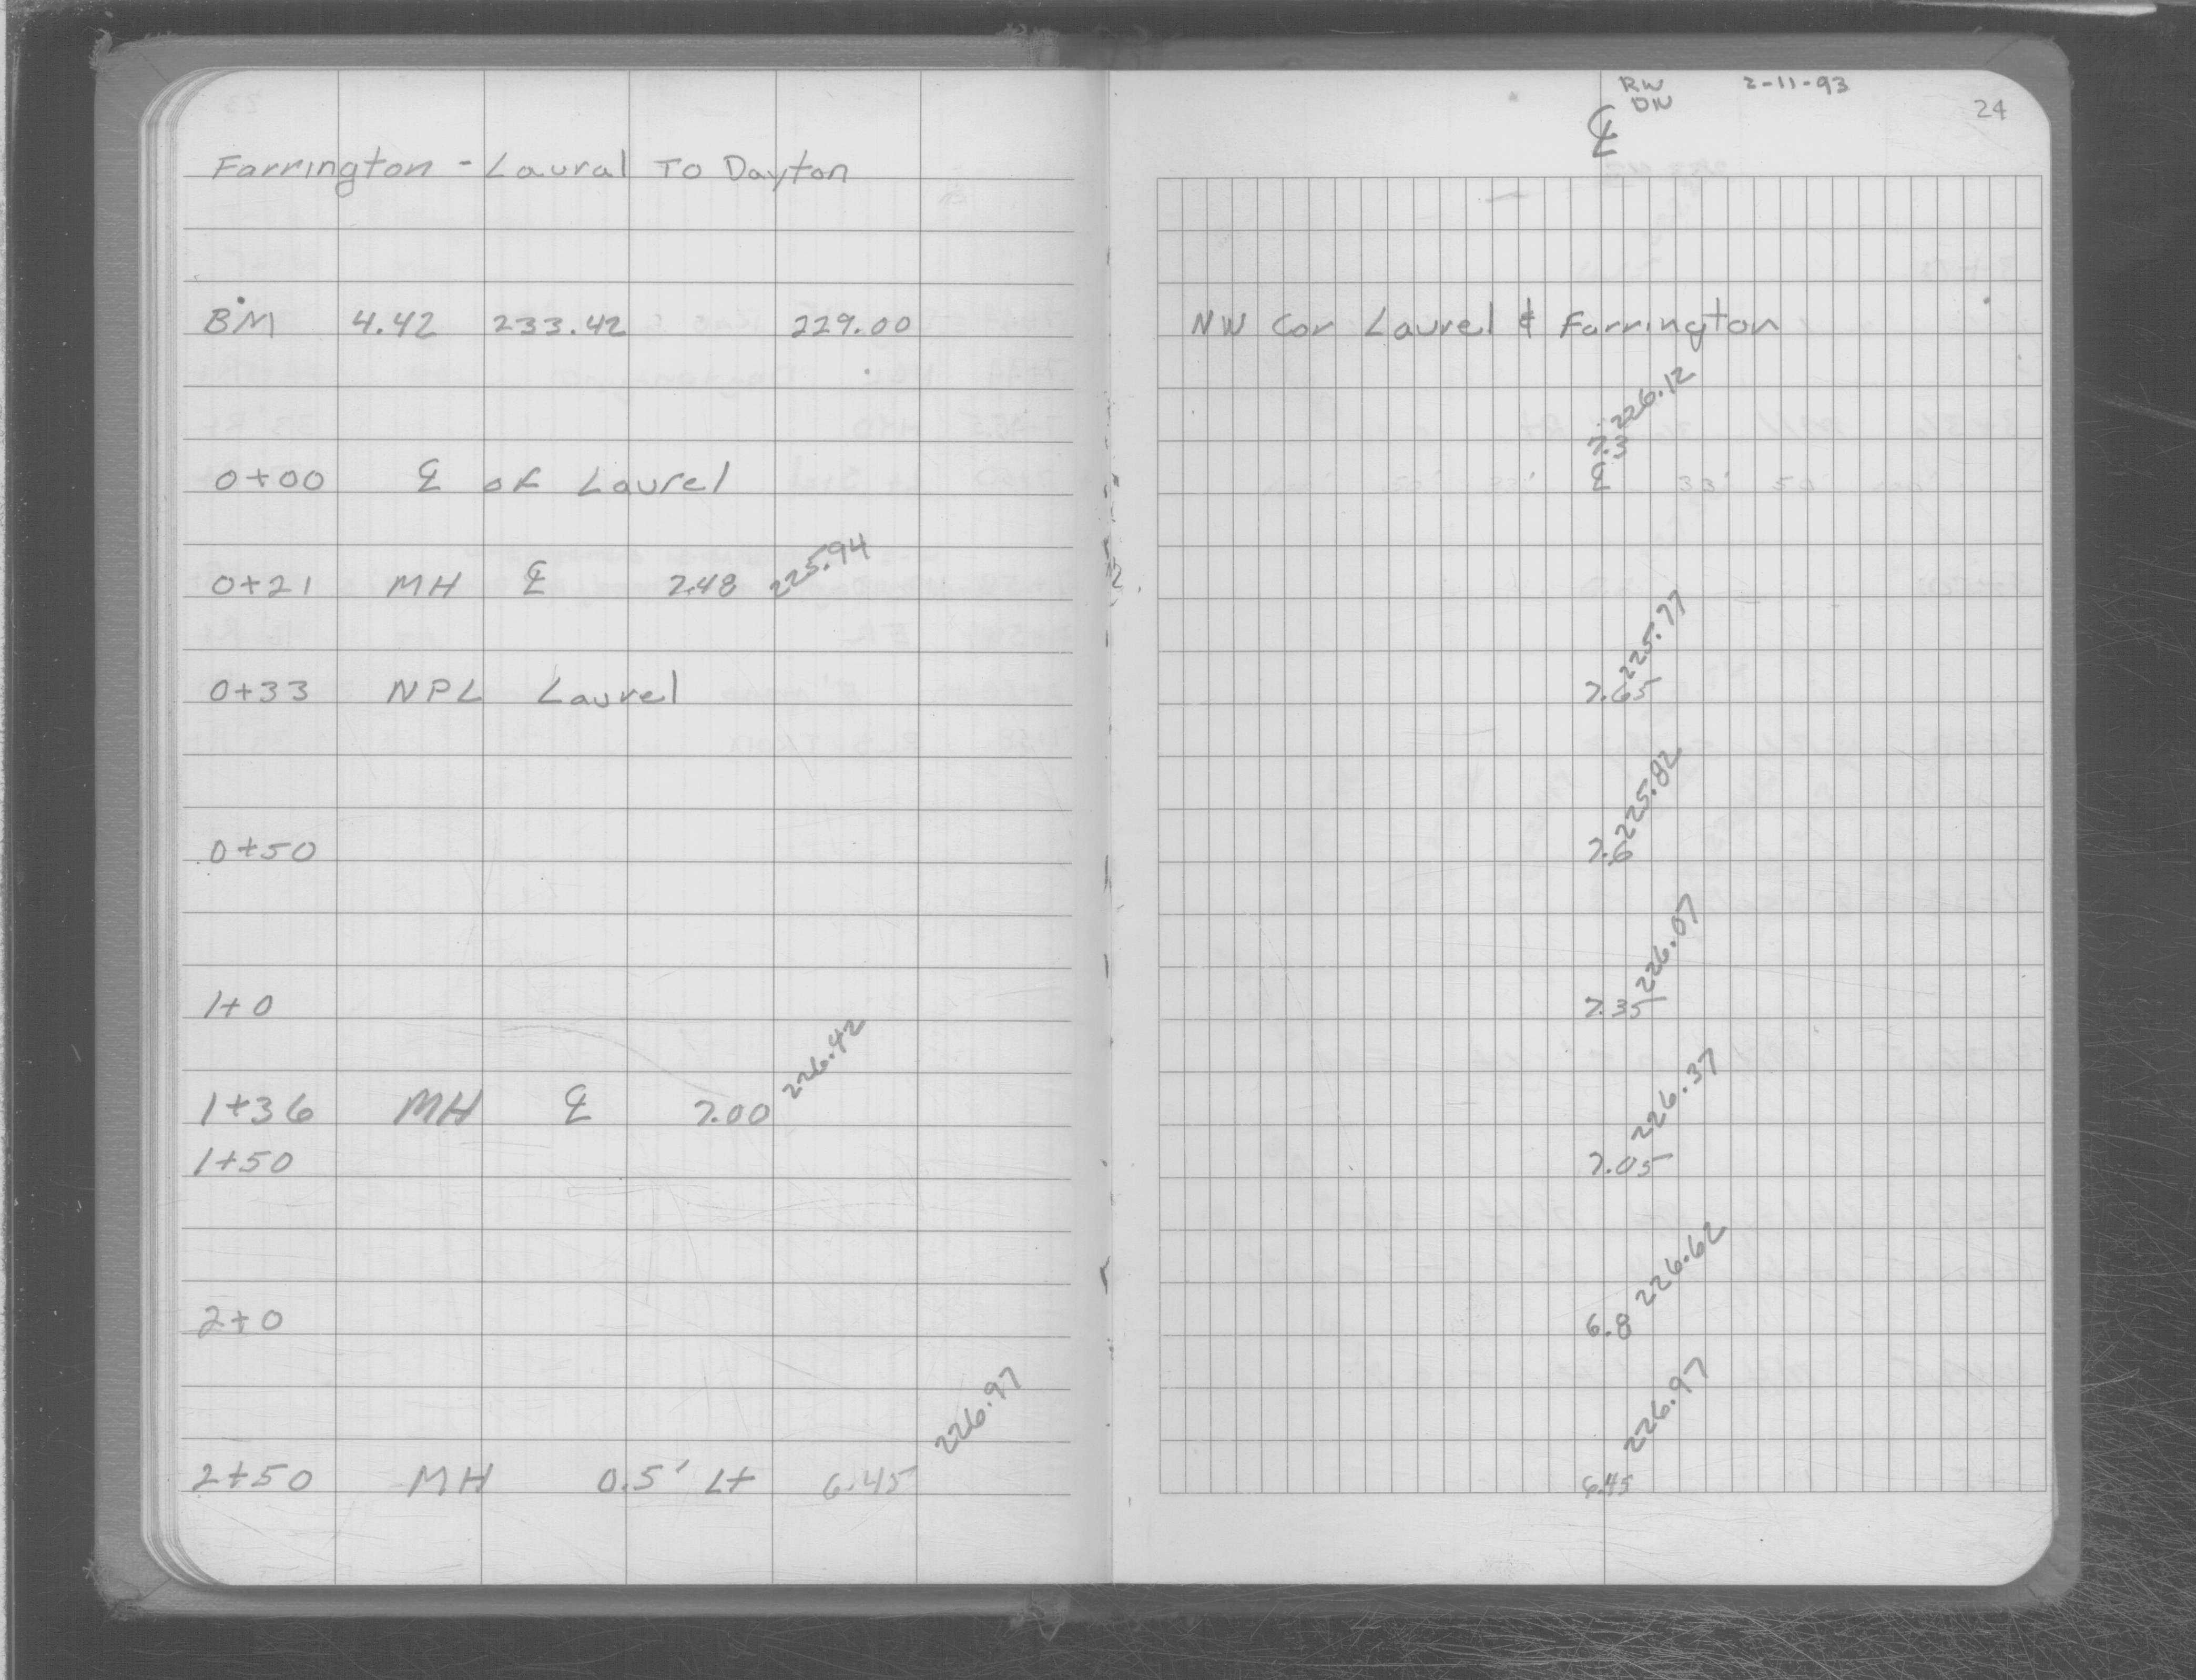 Farrington - Laural To Dayton
BM 4.42 233.42 229.00
0+00 ℄ of Laurel
0+21 MH ℄ 7.48 225.94
0+33 NPL Laurel
0+50
1+0
1+36 MH ℄ 7.00 226.42
1+50
2+0
2+50 MH 0.5' Lt 6.45 226.97
RW 2-11-93
DN
24
℄
NW Cor Laurel & Farrington
226.12
7.3
℄
225.77
7.65
225.82
7.6
226.07
7.35
226.37
7.05
226.62
6.8
226.97
6.45